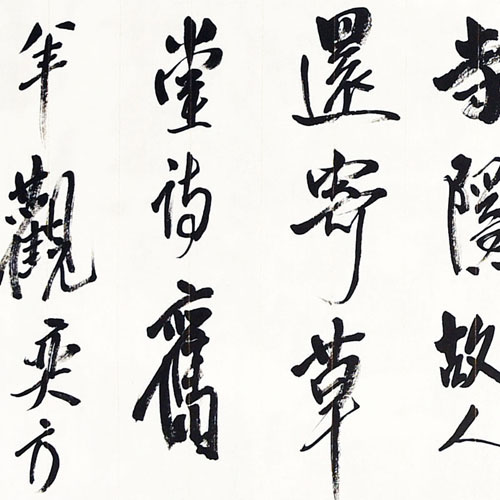 寺隱故人
還寄草
堂詩舊
年觀奕方